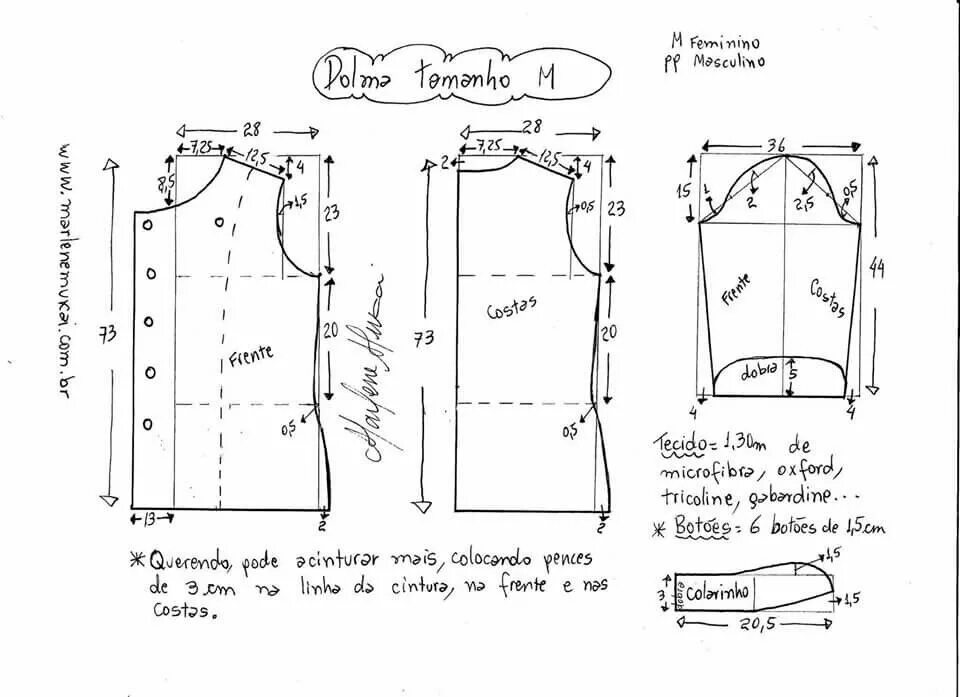 M Feminino
PP Masculino
Dolma tamanho M
www.marlenemukai.com.br
28
7,25
12,5
4
8,5
1,5
23
73
20
Frente
0,5
13
2
Marlene Mukai
28
7,25
2
12,5
4
0,5
23
Costas
73
20
0,5
2
36
15
1
2
2,5
0,5
44
Frente
Costas
dobra
5
4
4
Tecido = 1,30m de
microfibra, oxford,
tricoline, gabardine...
* Botões = 6 botões de 1,5cm
* Querendo, pode acinturar mais, colocando pences
de 3 cm na linha da cintura, na frente e nas
costas.
1,5
3
dobra
Colarinho
1,5
20,5